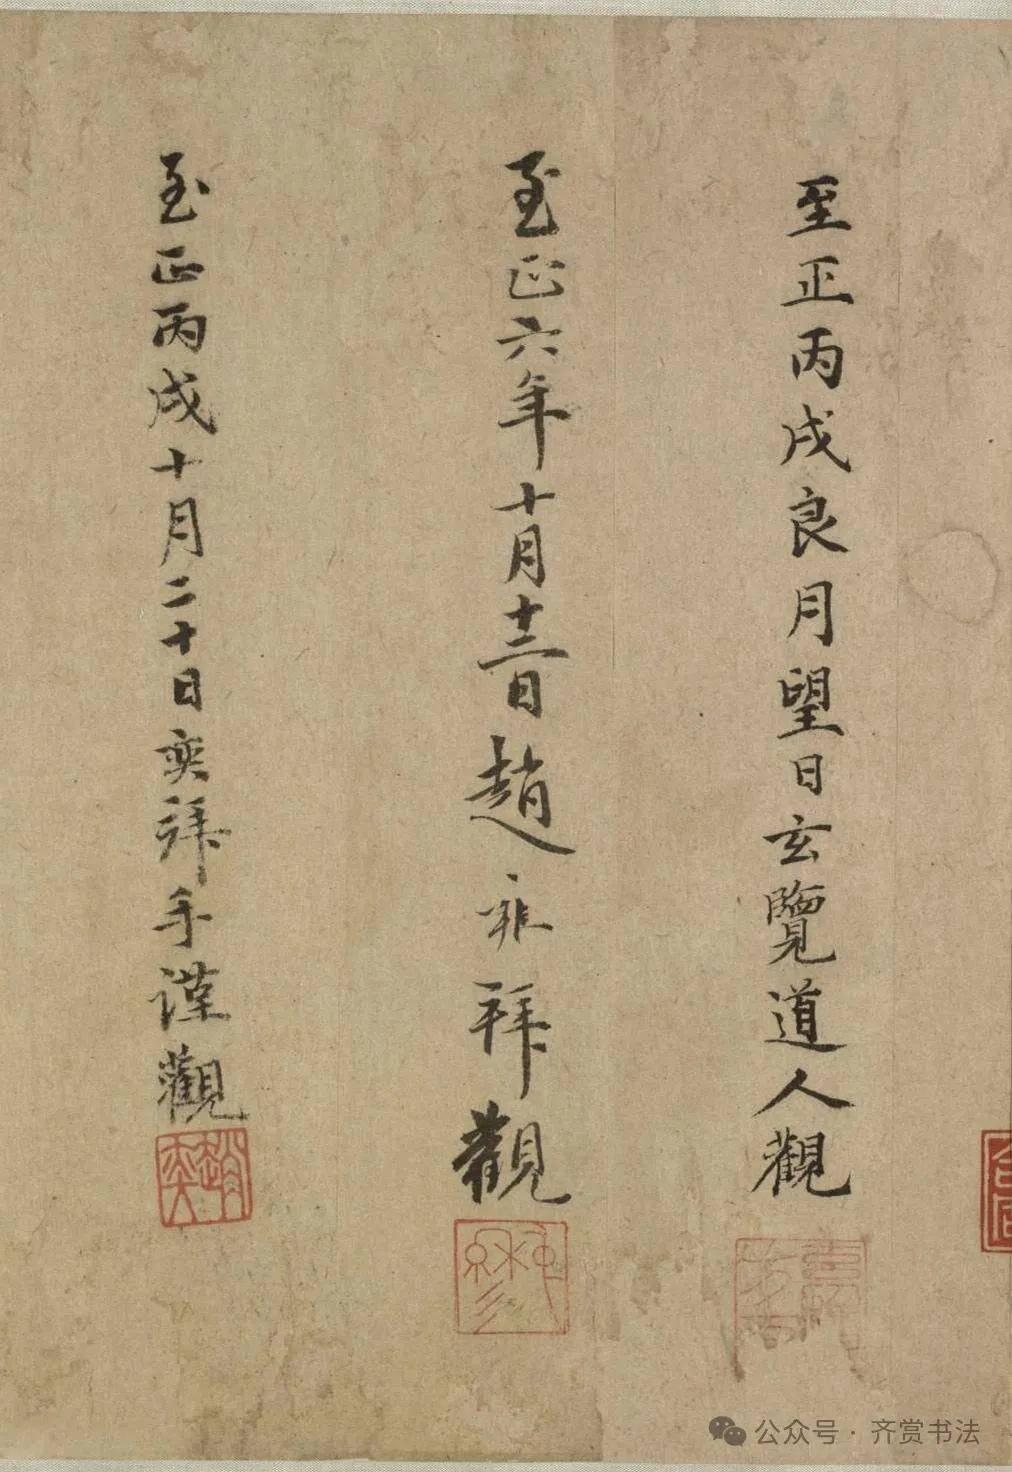 至正丙戌良月望日玄覽道人觀
至正六年十月十二日趙雍拜觀
至正丙戌十月二十日奕拜手謹觀
趙奕
公众号 · 齐赏书法